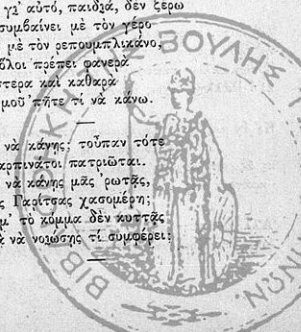 γι' αὐτό, παιδιά, δὲν ξέρω
συμβαίνει μὲ τὸν γέρο
μὲ τὸν ρεπουμπλικάνο,
ὅλοι πρέπει φανερὰ
στερα καὶ καθαρὰ
μοῦ πῆτε τί νὰ κάνω.
νὰ κάνῃς; τοὖπαν τότε
αρπινάτοι πατριῶται.
νὰ κάνῃς μᾶς ρωτᾷς,
ς Γαρίτσας χασομέρη;
μ' τὸ κόμμα δὲν κυττᾷς
ὰ νὰ νοιώσῃς τί συμφέρει;
ΒΟΥΛΗΣ